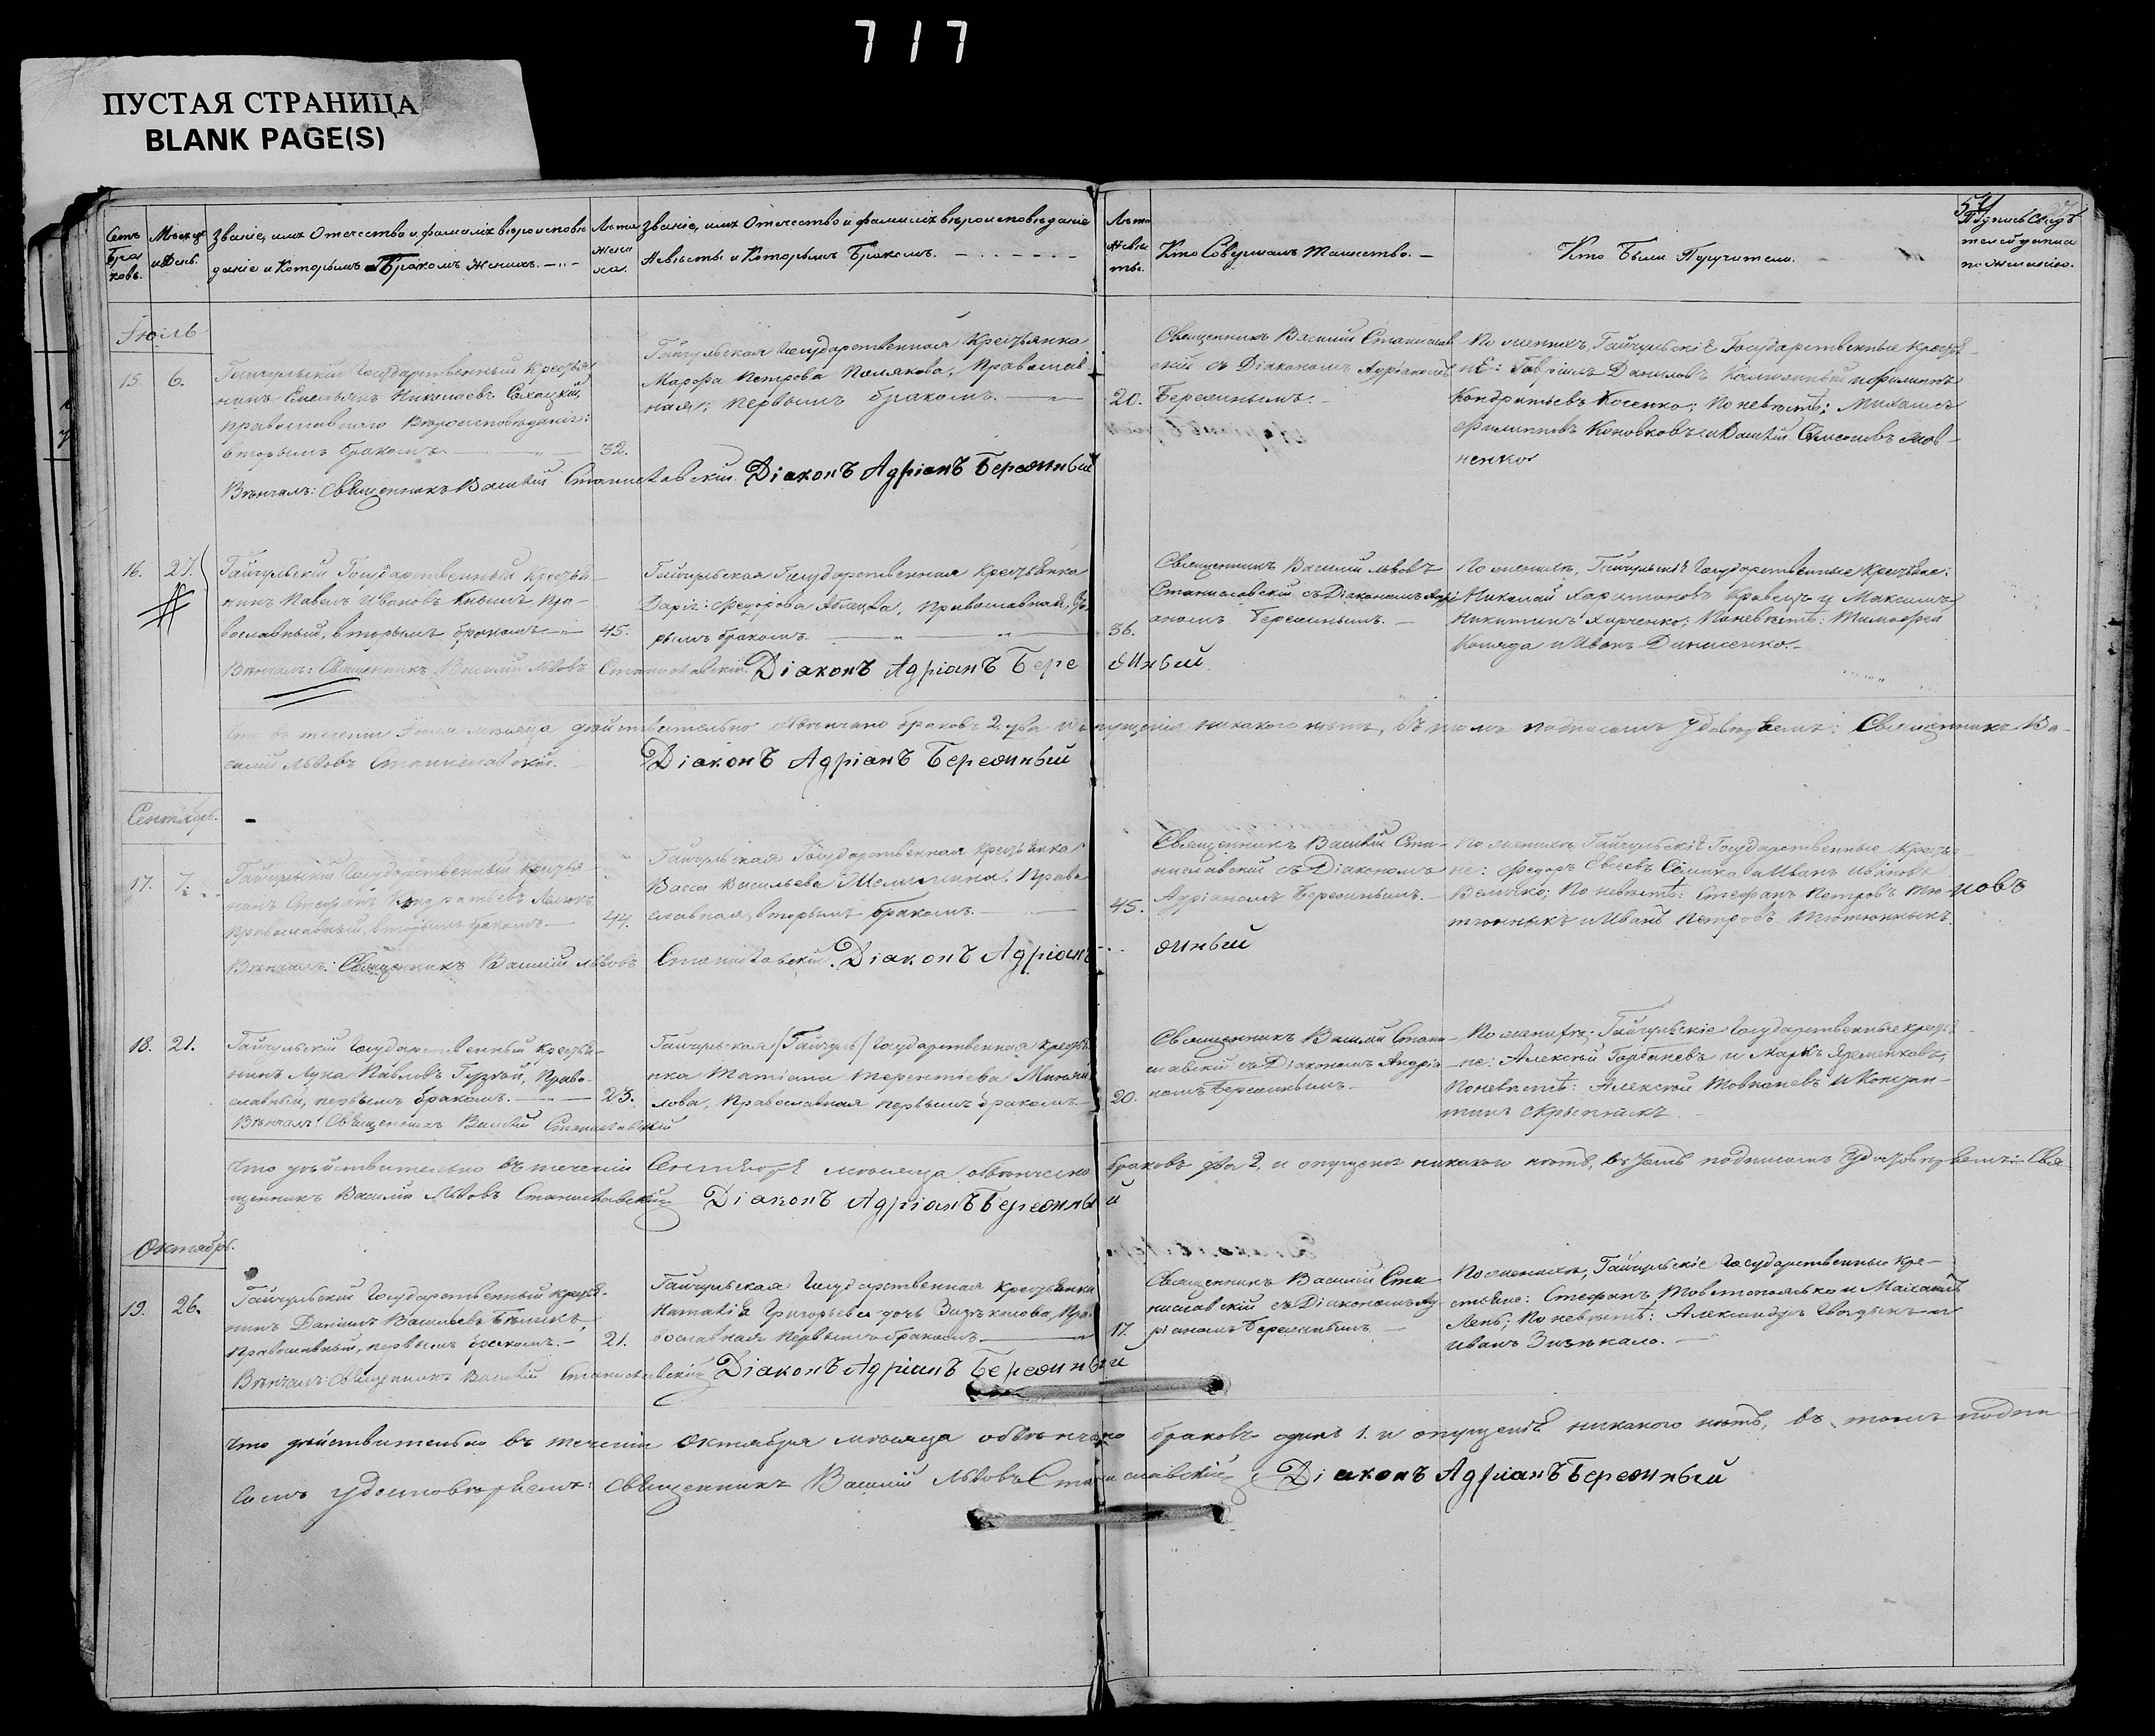 717
ПУСТАЯ СТРАНИЦА
BLANK PAGE(S)
Счетъ браковъ.
Мѣсяцъ и День.
Званіе, имя Отечество и фамилія вѣроисповѣ
даніе и Которымъ Бракомъ Женихъ.
Лѣта Жениха.
Званіе, имя Отечество и фамилія вѣроисповѣданіе
Невѣсты и Которымъ Бракомъ.
Лѣта Невѣсты.
Кто Совершалъ Таинство.
Кто Были Поручители.
54
Подпись Свидѣ
телей записи
по желанію.
Іюль
15. 6.
Гайчульскій Государственный Крестья
нинъ Емельянъ Николаевъ
православнаго Вѣроисповѣданія:
вторымъ бракомъ.
32.
Гайчульская Государственная Крестьянка
Марфа Петрова Полякова, Православ
ная; первымъ бракомъ.
20.
Священникъ Василій Станислав
скій съ Діакономъ Адріаномъ
Бережнымъ.
По женихѣ, Гайчульскіе Государственные Крестья
не: Гавріилъ Даниловъ
Кондратьевъ Косенко; По невѣстѣ; Михаилъ
Филипповъ Коновковъ и Василій
ненко
Вѣнчалъ: Священникъ Василій Станиславскій. Діаконъ Адріанъ Бережный
16. 27.
Гайчульскій Государственный Крестья-
нинъ Павелъ Ивановъ Кнышъ, пра-
вославный, вторымъ бракомъ
45.
Гайчульская Государственная Крестьянка
Дарія: Федорова Православная, вто
рымъ бракомъ
36.
Священникъ Василій Львовъ
Станиславскій съ Діакономъ Адрі
аномъ Бережнымъ.
По женихѣ, Гайчульскіе Государственные Крестьяне:
Николай Харитоновъ Кравецъ и Максимъ
Никитинъ Харченко; По невѣстѣ: Тимофей
Коляда и Иванъ Динисенко.
Вѣнчалъ: Священникъ Василій Львовъ Станиславскій. Діаконъ Адріанъ Бережный
Что въ теченіи Іюля мѣсяца дѣйствительно обвѣнчано браковъ 2 два и опущенія никакого нѣтъ, въ томъ подписомъ удовѣряемъ: Священникъ Ва-
силій Львовъ Станиславскій. Діаконъ Адріанъ Бережный
Сентябрь.
17. 7.
Гайчульскій Государственный Крестья
нинъ Стефанъ Кондратьевъ
православный, вторымъ бракомъ
44.
Гайчульская Государственная Крестьянка
Васса Васильева Право
славная, вторымъ бракомъ.
45.
Священникъ Василій Ста-
ниславскій съ Діакономъ
Адріаномъ Бережнымъ.
По женихѣ, Гайчульскіе Государственные Крестья-
не: Федоръ Евсеевъ и Иванъ Ивановъ
Величко; По невѣстѣ: Стефанъ Петровъ Тю
тюнныкъ и Иванъ Петровъ Тютюнныкъ.
Вѣнчалъ: Священникъ Василій Львовъ Станиславскій. Діаконъ Адріанъ
жный
18. 21.
Гайчульскій Государственный Крестья-
нинъ Лука Павловъ Гузвій, Право-
славный, первымъ бракомъ.
23.
Гайчульская (Гайчуль) Государственная Крестья
нка Татіана Терентіева
лова, Православная первымъ бракомъ
20.
Священникъ Василій Стани
славскій съ Діакономъ Андрія
номъ Бережнымъ
По женихѣ; Гайчульскіе Государственные Крестья
не: Алексѣй Горбаневъ и Маркъ Яременковъ;
По невѣстѣ: Алексѣй Товпаневъ и Констан-
тинъ Скрыпникъ.
Вѣнчалъ: Священникъ Василій Станиславскій
Что дѣйствительно въ теченіи Сентября мѣсяца обвѣнчано браковъ два 2, и опущенія никакого нѣтъ, въ чемъ подписомъ удостовѣряемъ: Свя
щенникъ Василій Львовъ Станиславскій Діаконъ Адріанъ Бережный
Октябрь.
19. 26.
Гайчульскій Государственный Крестья-
нинъ Даніилъ Васильевъ
Православный, первымъ бракомъ.
21.
Гайчульская Государственная Крестьянка
Наталія Григорьева дочь Пра
вославная первымъ бракомъ
17.
Священникъ Василій Ста
ниславскій съ Діакономъ Ад
ріаномъ Бережнымъ
По женихѣ, Гайчульскіе Государственные Кре-
стьяне: Стефанъ и Михаилъ
Лень; По невѣстѣ: Александръ и
Иванъ
Вѣнчалъ: Священникъ Василій Станиславскій Діаконъ Адріанъ Бережный
Что дѣйствительно въ теченіи Октября мѣсяца обвѣнчано браковъ одинъ 1. и опущенія никакого нѣтъ, въ томъ подпи
сомъ удостовѣряемъ: Священникъ Василій Львовъ Станиславскій Діаконъ Адріанъ Бережный